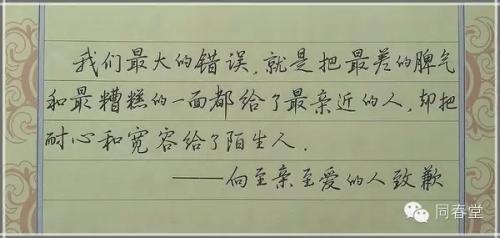 我们最大的错误,就是把最差的脾气
和最糟糕的一面都给了最亲近的人,却把
耐心和宽容给了陌生人.
——向至亲至爱的人致歉
同春堂